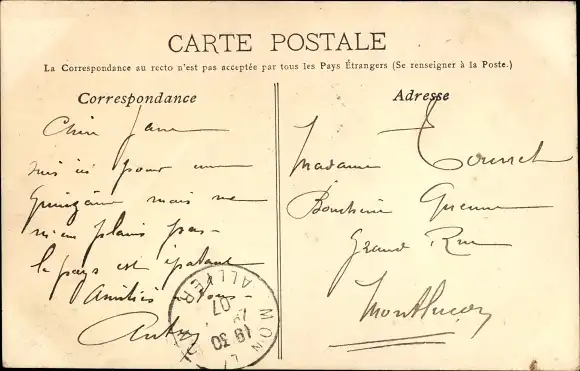 CARTE POSTALE
La Correspondance au recto n'est pas acceptée par tous les Pays Étrangers (Se renseigner à la Poste.)
Correspondance
suis ici pour une
quinzaine mais ne
m'en plains pas
le pays est épatant
Amitiés à tous
Adresse
Madame Tournet
Boucherie
Grande Rue
Montluçon
ALLIER
07
19 30